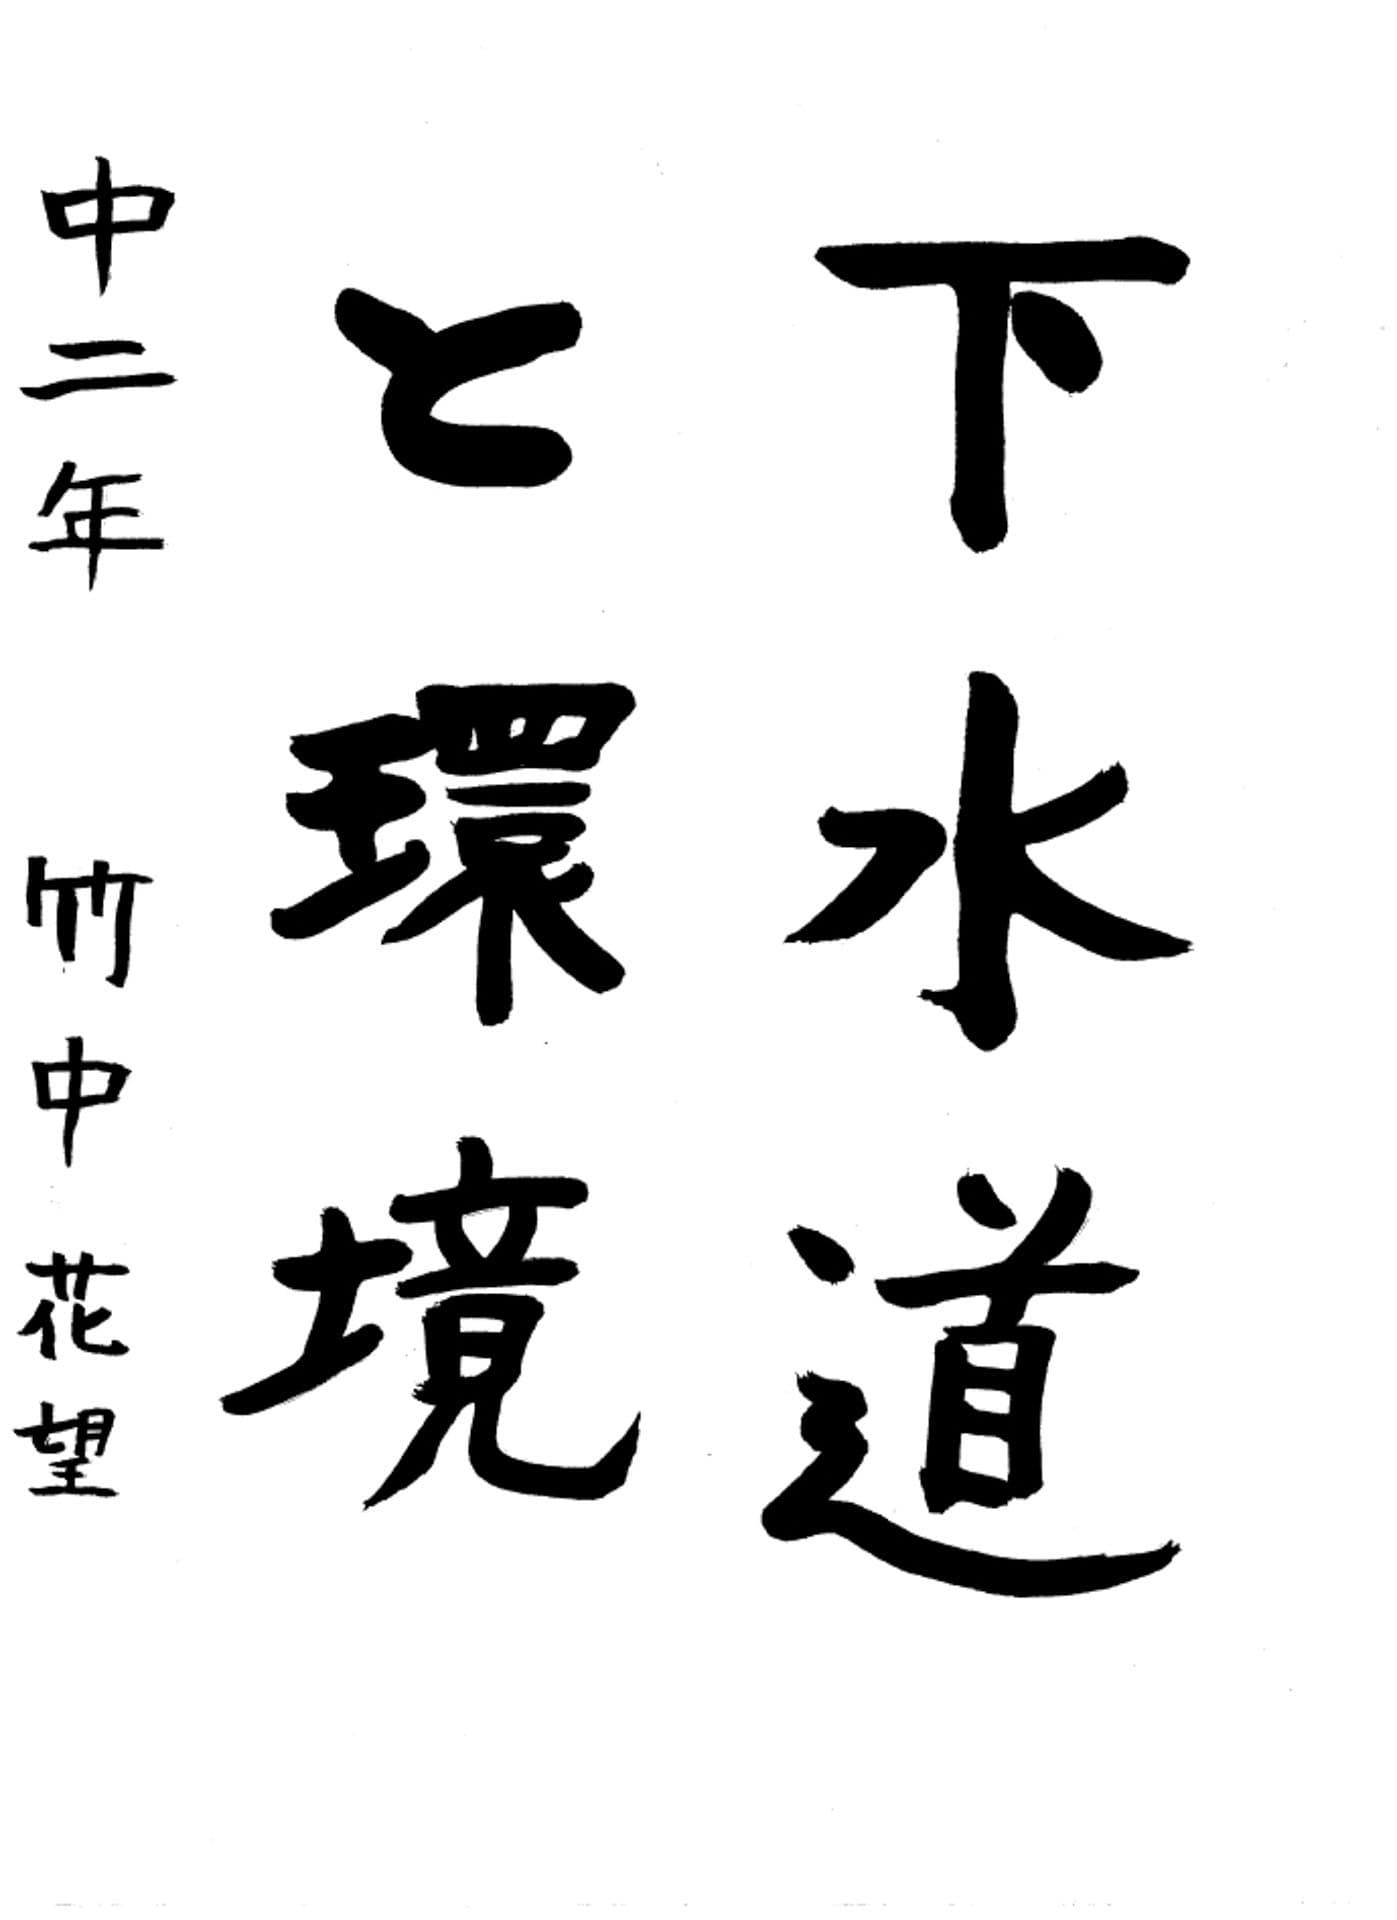 下水道
と環境
中二年 竹中花望